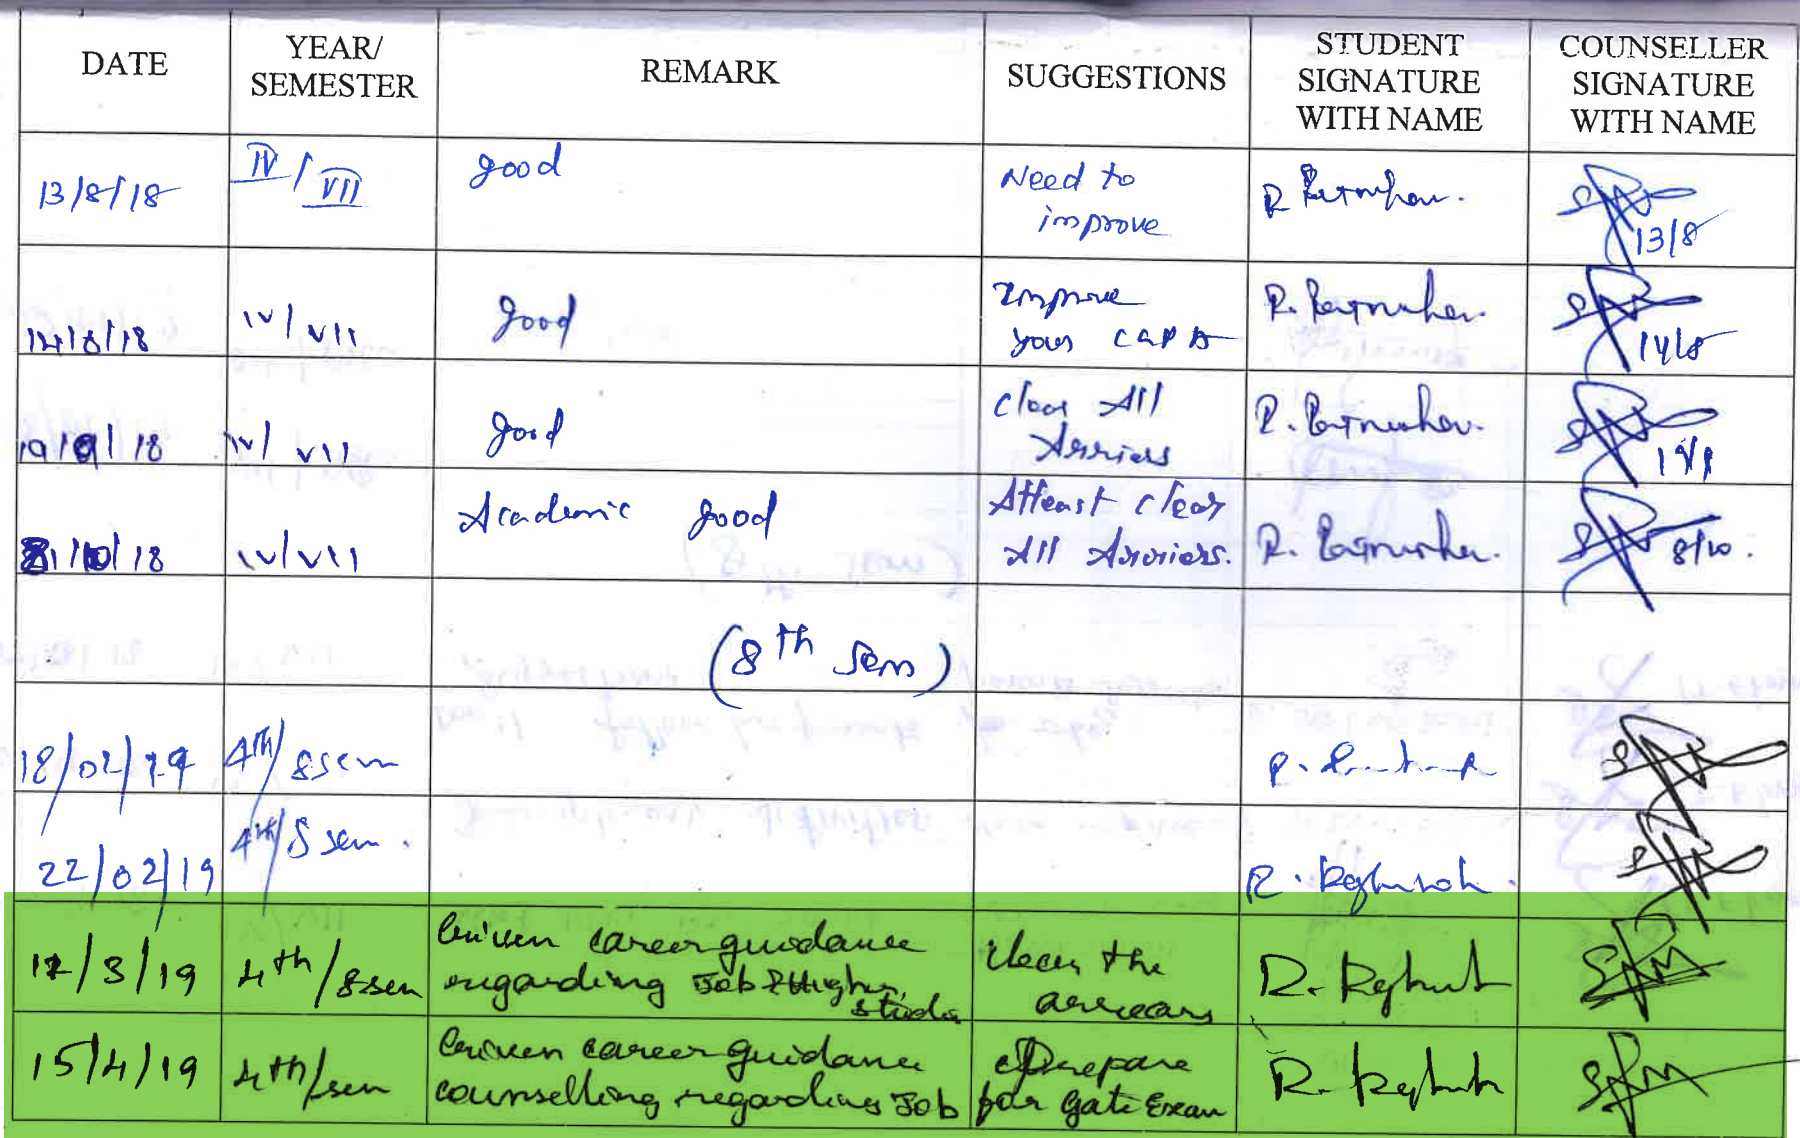 DATE
YEAR/
SEMESTER
REMARK
SUGGESTIONS
STUDENT
SIGNATURE
WITH NAME
COUNSELLER
SIGNATURE
WITH NAME
13/8/18
IV / VII
good
Need to
improve
13/8
14/8/18
IV / VII
good
Improve
your CGPA
14/8
19/9/18
IV / VII
good
Clear All
Arriers
8/10/18
IV / VII
Academic good
Atleast clear
All Arriers.
8/10.
(8th Sem)
18/02/19
4th/8sem
22/02/19
4th/8 sem.
12/3/19
4th/8sem
Given career guidance
regarding Job & Higher
Clear the
arrears
15/4/19
4th/sem
Given career guidance
counselling regarding Job
Prepare
for Gate Exam